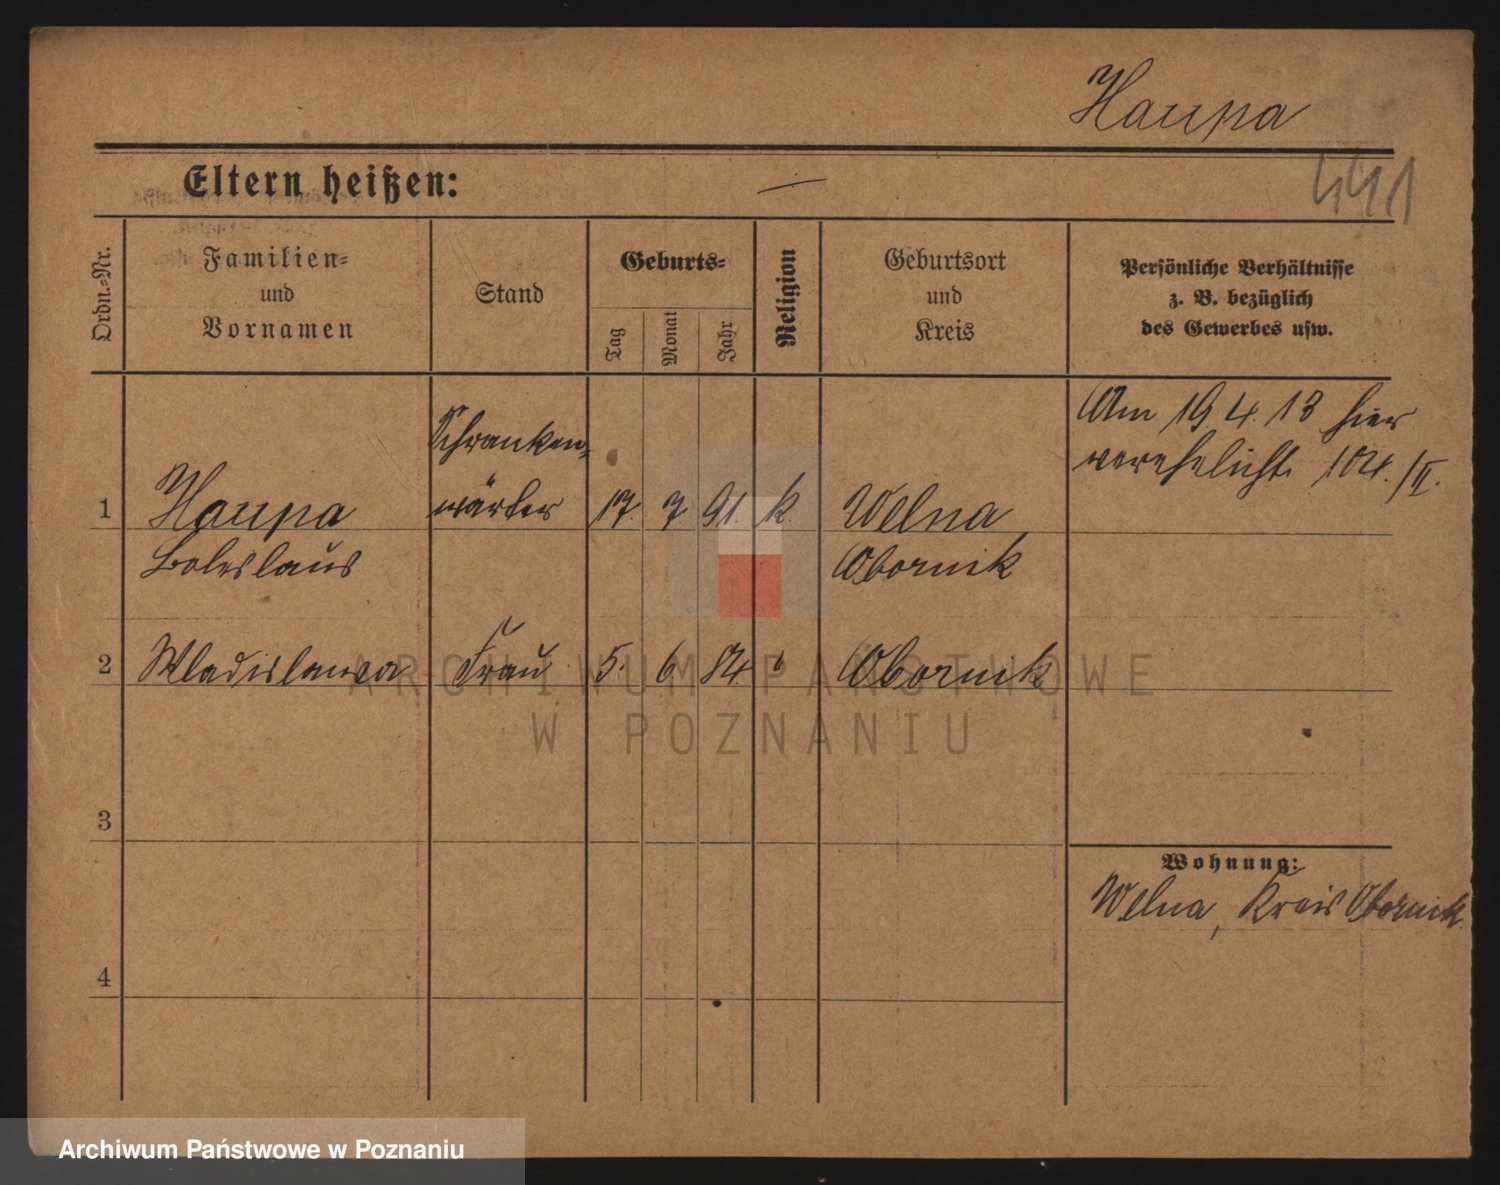 Haupa
441
Eltern heißen: —
Ordn.-Nr.
Familien-
und
Vornamen
Stand
Geburts-
Tag
Monat
Jahr
Religion
Geburtsort
und
Kreis
Persönliche Verhältnisse
z. B. bezüglich
des Gewerbes usw.
Am 19.4.18 hier
verehelicht. 104./II.
Schranken-
1 Haupa wärter 17. 7 91. k. Welna
Boleslaus Obornik
2 Wladislawa Frau 5. 6. 84. Obornik
ARCHIWUM PAŃSTWOWE
W POZNANIU
3
Wohnung:
Welna, Kreis Obornik.
4
Archiwum Państwowe w Poznaniu